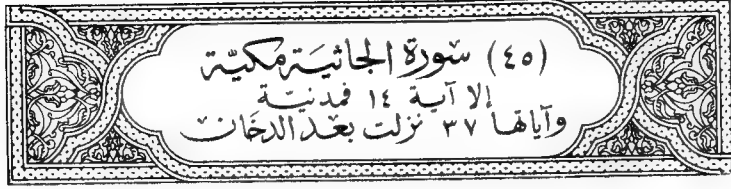 (٤٥) سُورَة الجاثيَة مكيّة
إلا آية ١٤ فمدنيّة
وآياتها ٣٧ نزلت بعد الدخان